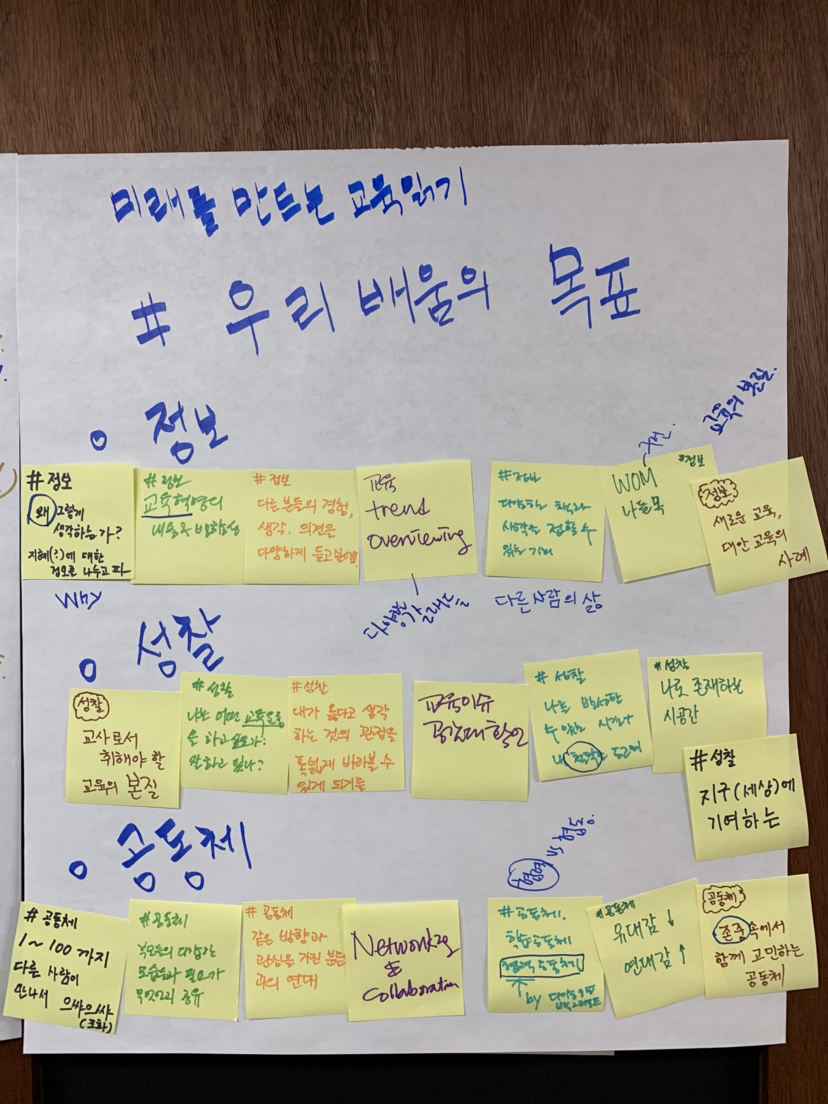 미래를 만드는 교육읽기
# 우리 배움의 목표
교육의 본질.
정보
# 정보
왜 그렇게
생각하는가?
지혜(?)에 대한
정보를 나누고 파
Why
# 정보
교육혁명의
내용과 방향성
# 정보
다른 분들의 경험,
생각, 의견을
다양하게 듣고 싶어요
교육
trend
overviewing
다양한
갈래들
#정보
다양한 책과
시각을 접할 수
있는 기회
다른 사람의 삶
#정보
WOM
나눔목
구전.
정보
새로운 교육,
대안 교육의
사례
성찰
성찰
교사로서
취해야 할
교육의 본질
#성찰
나는 어떤 교육
을 하고
안하고 있나?
#성찰
내가 옳다고 생각
하는 것의 관점을
폭넓게 바라볼 수
있게 되기를
교육이슈
# 성찰
나는
수 있는
나
#성찰
나로 존재하는
시공간
#성찰
지구(세상)에
기여하는
공동체
# 공동체
1~100까지
다른 사람이
만나서 으쌰으쌰
(조화)
#공동체
모습과 필요가
무엇인지 공유
# 공동체
같은 방향과
관심을 가진 분들
과의 연대
Networking
&
Collaboration
협력 vs 협동.
#공동체.
학습공동체
협력 공동체
by
#공동체
유대감 ↓
연대감 ↑
공동체
존중 속에서
함께 고민하는
공동체